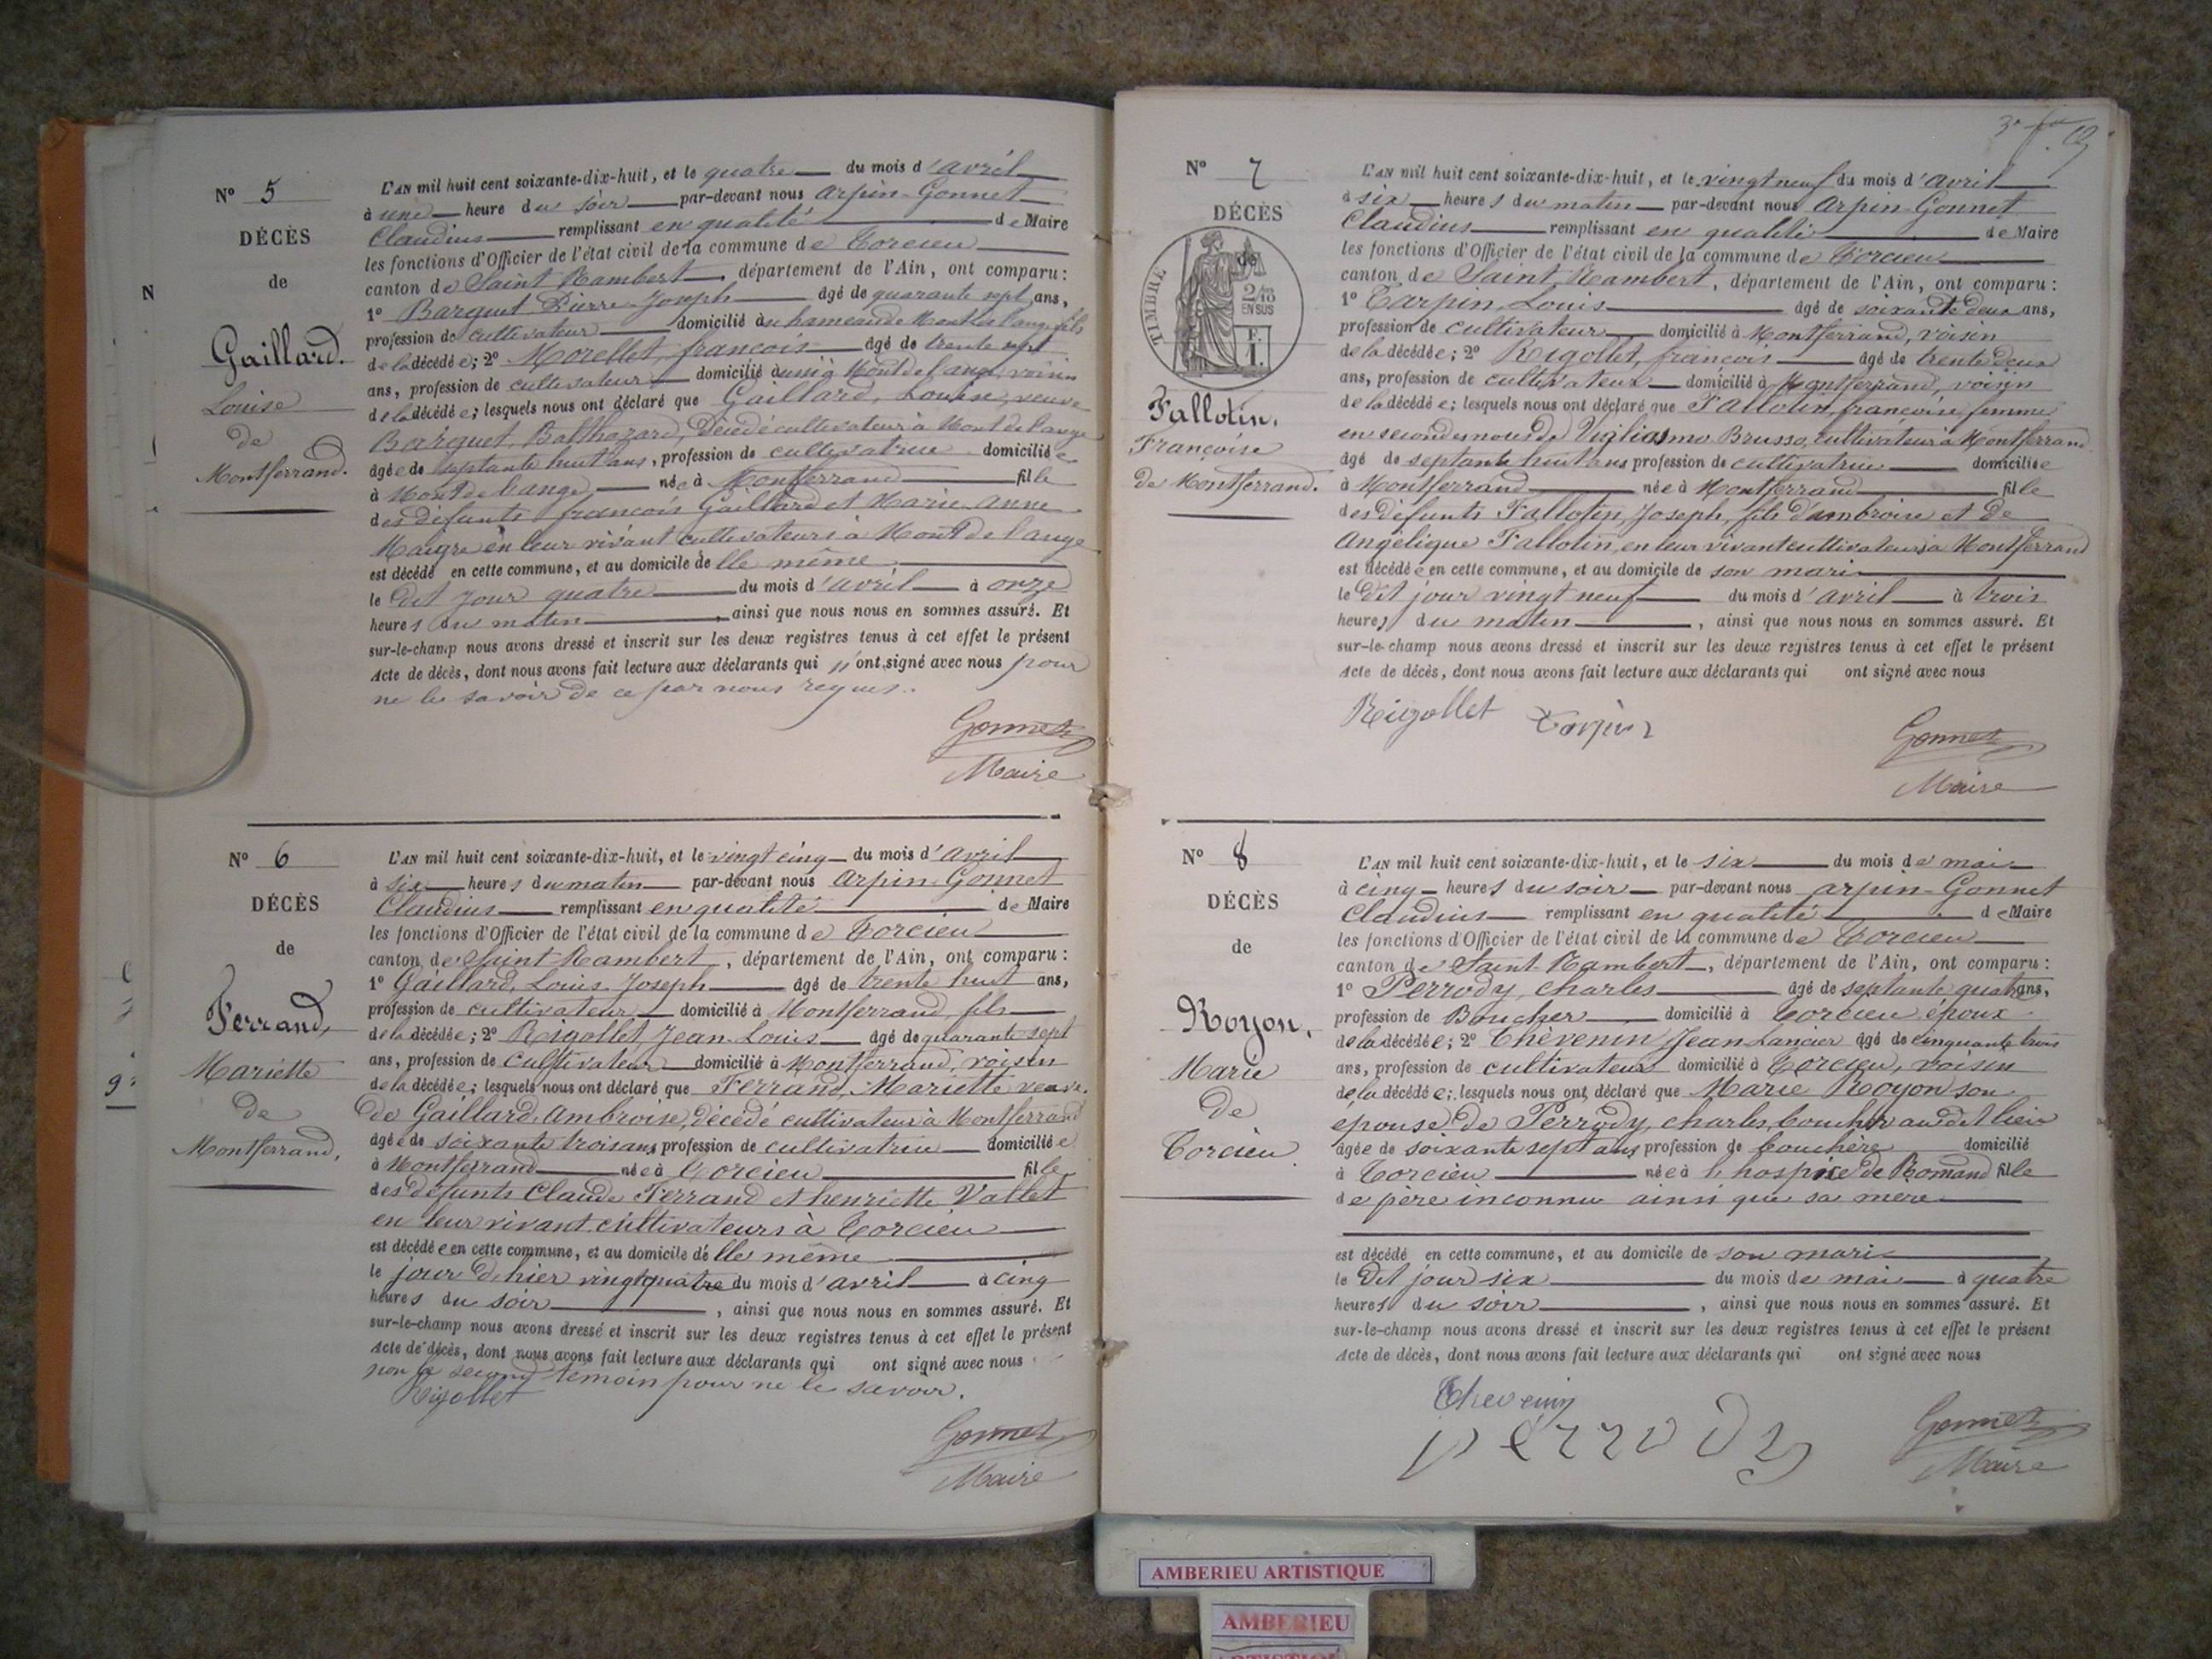 N
N° 5
DÉCÈS
de
Gaillard.
Louise
de
Montferrand.
L'AN mil huit cent soixante-dix-huit, et le quatre du mois d'avril
à une heure du soir par-devant nous Arpin-Gonnet
Claudius remplissant en qualité de Maire
les fonctions d'Officier de l'état civil de la commune de Torcieu
canton de Saint Rambert, département de l'Ain, ont comparu :
1° Barquet Pierre Joseph âgé de quarante sept ans,
profession de cultivateur domicilié au hameau de Mont de lange fils
de la décédée; 2° Morellet, francois âgé de trente sept
ans, profession de cultivateur domicilié aussi à Mont de lange, voisin
de la décédée; lesquels nous ont déclaré que Gaillard, Louise, veuve
Barquet Balthazard, Décédé cultivateur à Mont de lange
âgée de septante huit ans, profession de cultivatrice domiciliée
à Mont de lange, née à Montferrand fille
des défunts francois Gaillard et Marie Anne
Maigre en leur vivant cultivateurs à Mont de lange
est décédé en cette commune, et au domicile delle même
le Dit jour quatre du mois d'avril à onze
heures du matin, ainsi que nous nous en sommes assuré. Et
sur-le-champ nous avons dressé et inscrit sur les deux registres tenus à cet effet le présent
Acte de décès, dont nous avons fait lecture aux déclarants qui n'ont signé avec nous pour
ne le savoir de ce par nous requis.
Gonnet
Maire
N° 6
DÉCÈS
de
Ferrand,
Mariette
de
Montferrand,
L'AN mil huit cent soixante-dix-huit, et le vingt cinq du mois d'avril
à six heures du matin par-devant nous Arpin-Gonnet
Claudius remplissant en qualité de Maire
les fonctions d'Officier de l'état civil de la commune de Torcieu
canton de Saint-Rambert, département de l'Ain, ont comparu :
1° Gaillard, Louis Joseph âgé de trente huit ans,
profession de cultivateur domicilié à Montferrand, fils
de la décédée; 2° Rigollet, Jean-Louis âgé de quarante sept
ans, profession de cultivateur domicilié à Montferrand, voisin
de la décédée; lesquels nous ont déclaré que Ferrand, Mariette veuve
de Gaillard, Ambroise, Décédé cultivateur à Montferrand
âgée de soixante trois ans, profession de cultivatrice domiciliée
à Montferrand née à Torcieu fille
des défunts Claude Ferrand et henriette Vallet
en leur vivant cultivateurs à Torcieu
est décédée en cette commune, et au domicile delle même
le jour d'hier vingt quatre du mois d'avril à cinq
heures du soir, ainsi que nous nous en sommes assuré. Et
sur-le-champ nous avons dressé et inscrit sur les deux registres tenus à cet effet le présent
Acte de décès, dont nous avons fait lecture aux déclarants qui ont signé avec nous
non le second témoin pour ne le savoir.
Rigollet
Gonnet
Maire
N° 7
DÉCÈS
de
TIMBRE
2/10
EN SUS
F.
1.
Fallotin.
Françoise
de Montferrand.
L'AN mil huit cent soixante-dix-huit, et le vingt neuf du mois d'avril
à six heures du matin par-devant nous Arpin-Gonnet
Claudius remplissant en qualité de Maire
les fonctions d'Officier de l'état civil de la commune de Torcieu
canton de Saint Rambert, département de l'Ain, ont comparu :
1° Tarpin Louis âgé de soixante deux ans,
profession de cultivateur domicilié à Montferrand, voisin
de la décédée; 2° Rigollet, françois âgé de trente deux
ans, profession de cultivateur domicilié à Montferrand, voisin
de la décédée; lesquels nous ont déclaré que Fallotin, françoise, femme
en secondes noces de Vigliasmo Brusso, cultivateur à Montferrand
âgé de septante huit ans profession de cultivatrice domiciliée
à Montferrand née à Montferrand fille
des défunts Fallotin, Joseph, fils d'ambroise et De
Angélique Fallotin, en leur vivant cultivateurs à Montferrand
est décédée en cette commune, et au domicile de son mari
le Dit jour vingt neuf du mois d'avril à trois
heures du matin, ainsi que nous nous en sommes assuré. Et
sur-le-champ nous avons dressé et inscrit sur les deux registres tenus à cet effet le présent
Acte de décès, dont nous avons fait lecture aux déclarants qui ont signé avec nous
Rigollet Tarpin
Gonnet
Maire
N° 8
DÉCÈS
de
Royon,
Marie
De
Torcieu.
L'AN mil huit cent soixante-dix-huit, et le six du mois de mai
à cinq heures du soir par-devant nous Arpin-Gonnet
Claudius remplissant en qualité de Maire
les fonctions d'Officier de l'état civil de la commune de Torcieu
canton de Saint-Rambert, département de l'Ain, ont comparu :
1° Perrody, charles âgé de septante quatre ans,
profession de Boucher domicilié à Torcieu époux
de la décédée; 2° Thévenin Jean Lancier âgé de cinquante trois
ans, profession de cultivateur domicilié à Torcieu, voisin
de la décédée; lesquels nous ont déclaré que Marie Royon son
épouse de Perrody, charles, boucher au dit lieu
âgée de soixante sept ans, profession de bouchère domicilié
à Torcieu née à l'hospice de Romand fille
de père inconnu ainsi que sa mère
est décédé en cette commune, et au domicile de son mari
le Dit jour six du mois de mai à quatre
heures du soir, ainsi que nous nous en sommes assuré. Et
sur-le-champ nous avons dressé et inscrit sur les deux registres tenus à cet effet le présent
Acte de décès, dont nous avons fait lecture aux déclarants qui ont signé avec nous
Thevenin
perrody
Gonnet
Maire
AMBERIEU ARTISTIQUE
AMBERIEU
ARTISTIQUE